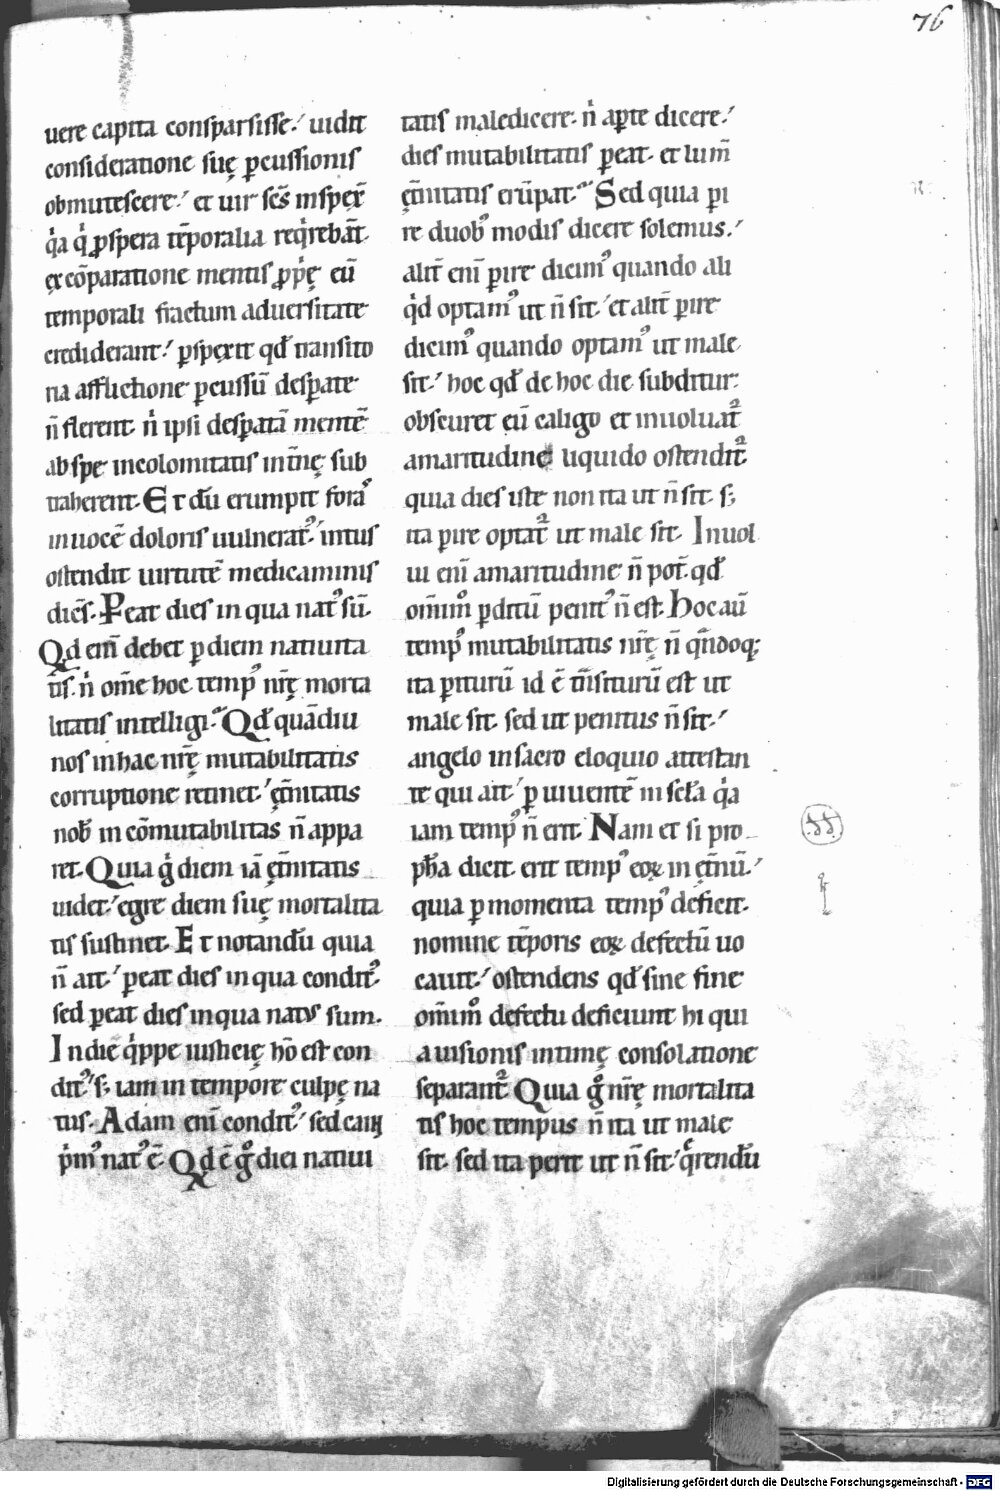 76
uere capita conſparſiſſe.ʹ uidit
conſideratione ſuę ꝑcuſſioniſ
obmuteſcere.ʹ et uir ſc̄ſ inſpex̄
q̇a q̇ ꝓſpera tēporalia req̇rebāt.
ex cōparatione mentiſ ꝓp̄ę eū
temporali fractum aduerſitate
crediderant.ʹ ꝑſpexit qđ tranſito
ria afflictione ꝑcuſſū deſꝑate
n̄ flerent. n̓ ipſi deſꝑatā mentē
ab ſpe incolomitatiſ int̄nę ſub
traherent. Et dū erumpit foraſ
in uocē doloriſ uulneratꝰ.ʹ intuſ
oſtendit uirtutē medicaminiſ
dicēſ. Peat dieſ in qua natꝰ ſū.
Qd eni̅ debet ꝑ diem natiuita
tiſ. n̓ om̄e hoc tempꝰ nr̄ę morta
litatiſ intelligi. Qđ quādiu
noſ in hac nr̄ę mutabilitatiſ
corruptione retinet.ʹ ęt̄nitatiſ
nob̄ incōmutabilitaſ n̄ appa
ret. Quia g̊ diem iā ęt̄nitatiſ
uidet.ʹ egre diem ſuę mortalita
tiſ ſuſtinet. Et notandū quia
n̄ ait.ʹ ꝑeat dieſ in qua conditꝰ.
ſed ꝑeat dieſ in qua natuſ ſum.
In die q̇ppe iuſticię hō eſt con
ditꝰ.ʹ ſ; iam in tempore culpę na
tuſ. Adam eni̅ conditꝰ.ʹ ſed cain
p̓mꝰ natꝰ ē. Qd ē g̊ diei natiui
tatiſ maledicere. n̓ aꝑte dicere.ʹ
dieſ mutabilitatiſ ꝑeat. et lum̄
ęt̄nitatiſ erūpat. Sed quia ꝑi
re duobꝰ modiſ dicere ſolemuſ.ʹ
alit̄ eni̅ ꝑire dicimꝰ quando ali
q̇d optamꝰ ut n̄ ſit.ʹ et alit̄ ꝑire
dicimꝰ quando optamꝰ ut male
ſit.ʹ hoc qđ de hoc die ſubditur.
obſcuret eū caligo et inuoluat᷑
amaritudine liquido oſtendit᷑.
quia dieſ iſte non ita ut n̄ ſit. ſ;
ita ꝑire optat᷑ ut male ſit. Inuol
ui eni̅ amaritudine n̄ pot̄. qđ
om̄imꝰ ꝑditū penitꝰ n̄ eſt. Hoc aū
tempꝰ mutabilitatiſ nr̄ę n̄ qn̄doq;
ita ꝑiturū id ē tn̄ſiturū eſt ut
male ſit. ſed ut penituſ n̄ ſit.ʹ
angelo in ſacro eloquio atteſtan
te qui ait.ʹ ꝑ uiuentē in ſcl̄a q̇a
iam tempꝰ n̄ erit. Nam et ſi pro
ph̄a dicit. erit tempꝰ eoꝝ in ęt̄nū.ʹ
quia ꝑ momenta tempꝰ deficit.
nomine tēporiſ eoꝝ defectū uo
cauit.ʹ oſtendenſ qđ ſine fine
om̄imꝰ defectu deficiunt hi qui
a uiſioniſ intimę conſolatione
ſeparant᷑. Quia g̊ nr̄ę mortalita
tiſ hoc tempuſ n̄ ita ut male
ſit. ſed ita perit ut n̄ ſit.ʹ q̄rendū
Digitalisierung gefördert durch die Deutsche Forschungsgemeinschaft - DFG